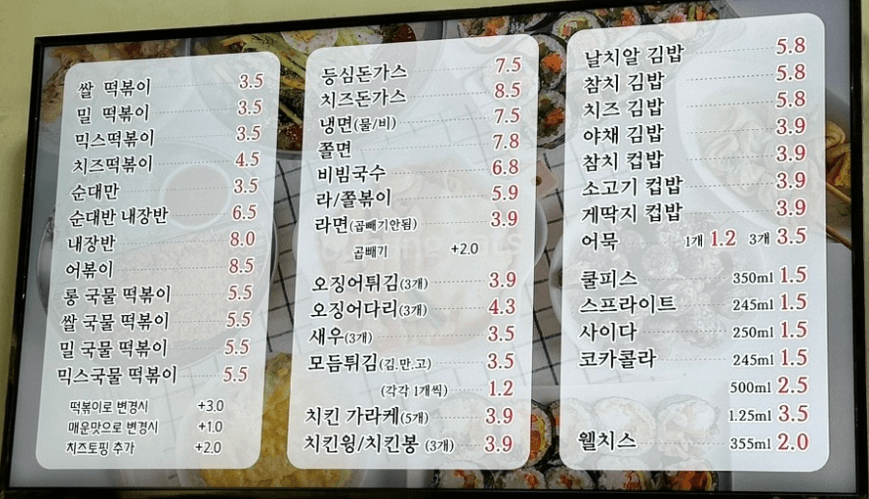 쌀 떡볶이 3.5
밀 떡볶이 3.5
믹스떡볶이 3.5
치즈떡볶이 4.5
순대만 3.5
순대반 내장반 6.5
내장반 8.0
어볶이 8.5
롱 국물 떡볶이 5.5
쌀 국물 떡볶이 5.5
밀 국물 떡볶이 5.5
믹스국물 떡볶이 5.5
떡볶이로 변경시 +3.0
매운맛으로 변경시 +1.0
치즈토핑 추가 +2.0
등심돈가스 7.5
치즈돈가스 8.5
냉면(물/비) 7.5
쫄면 7.8
비빔국수 6.8
라/쫄볶이 5.9
라면(곱빼기안됨) 3.9
곱빼기 +2.0
오징어튀김(3개) 3.9
오징어다리(3개) 4.3
새우(3개) 3.5
모듬튀김(김.만.고) 3.5
(각각 1개씩) 1.2
치킨 가라케(5개) 3.9
치킨윙/치킨봉 (3개) 3.9
날치알 김밥 5.8
참치 김밥 5.8
치즈 김밥 5.8
야채 김밥 3.9
참치 컵밥 3.9
소고기 컵밥 3.9
게딱지 컵밥 3.9
어묵 1개 1.2 3개 3.5
쿨피스 350ml 1.5
스프라이트 245ml 1.5
사이다 250ml 1.5
코카콜라 245ml 1.5
500ml 2.5
1.25ml 3.5
웰치스 355ml 2.0